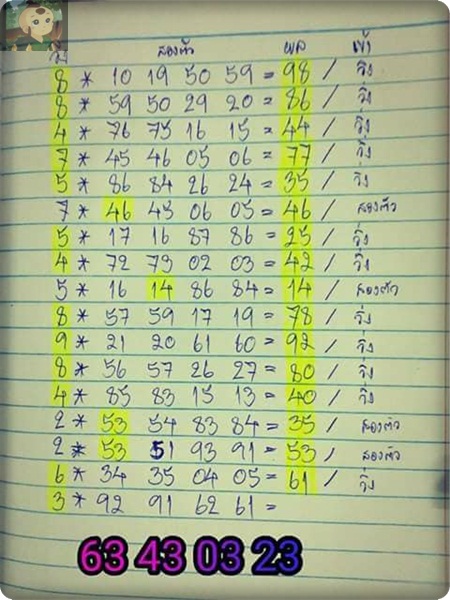 วิ่ง สองตัว ผล เข้า
8 * 10 19 50 59 = 98 / วิ่ง
8 * 59 50 29 20 = 86 / วิ่ง
4 * 76 75 16 15 = 44 / วิ่ง
7 * 45 46 05 06 = 77 / วิ่ง
5 * 86 84 26 24 = 35 / วิ่ง
7 * 46 45 06 05 = 46 / สองตัว
5 * 17 16 87 86 = 25 / วิ่ง
4 * 72 73 02 03 = 42 / วิ่ง
5 * 16 14 86 84 = 14 / สองตัว
8 * 57 59 17 19 = 78 / วิ่ง
9 * 21 20 61 60 = 92 / วิ่ง
8 * 56 57 26 27 = 80 / วิ่ง
4 * 85 83 15 13 = 40 / วิ่ง
2 * 53 54 83 84 = 35 / สองตัว
2 * 53 51 93 91 = 53 / สองตัว
6 * 34 35 04 05 = 61 / วิ่ง
3 * 92 91 62 61 =
63 43 03 23